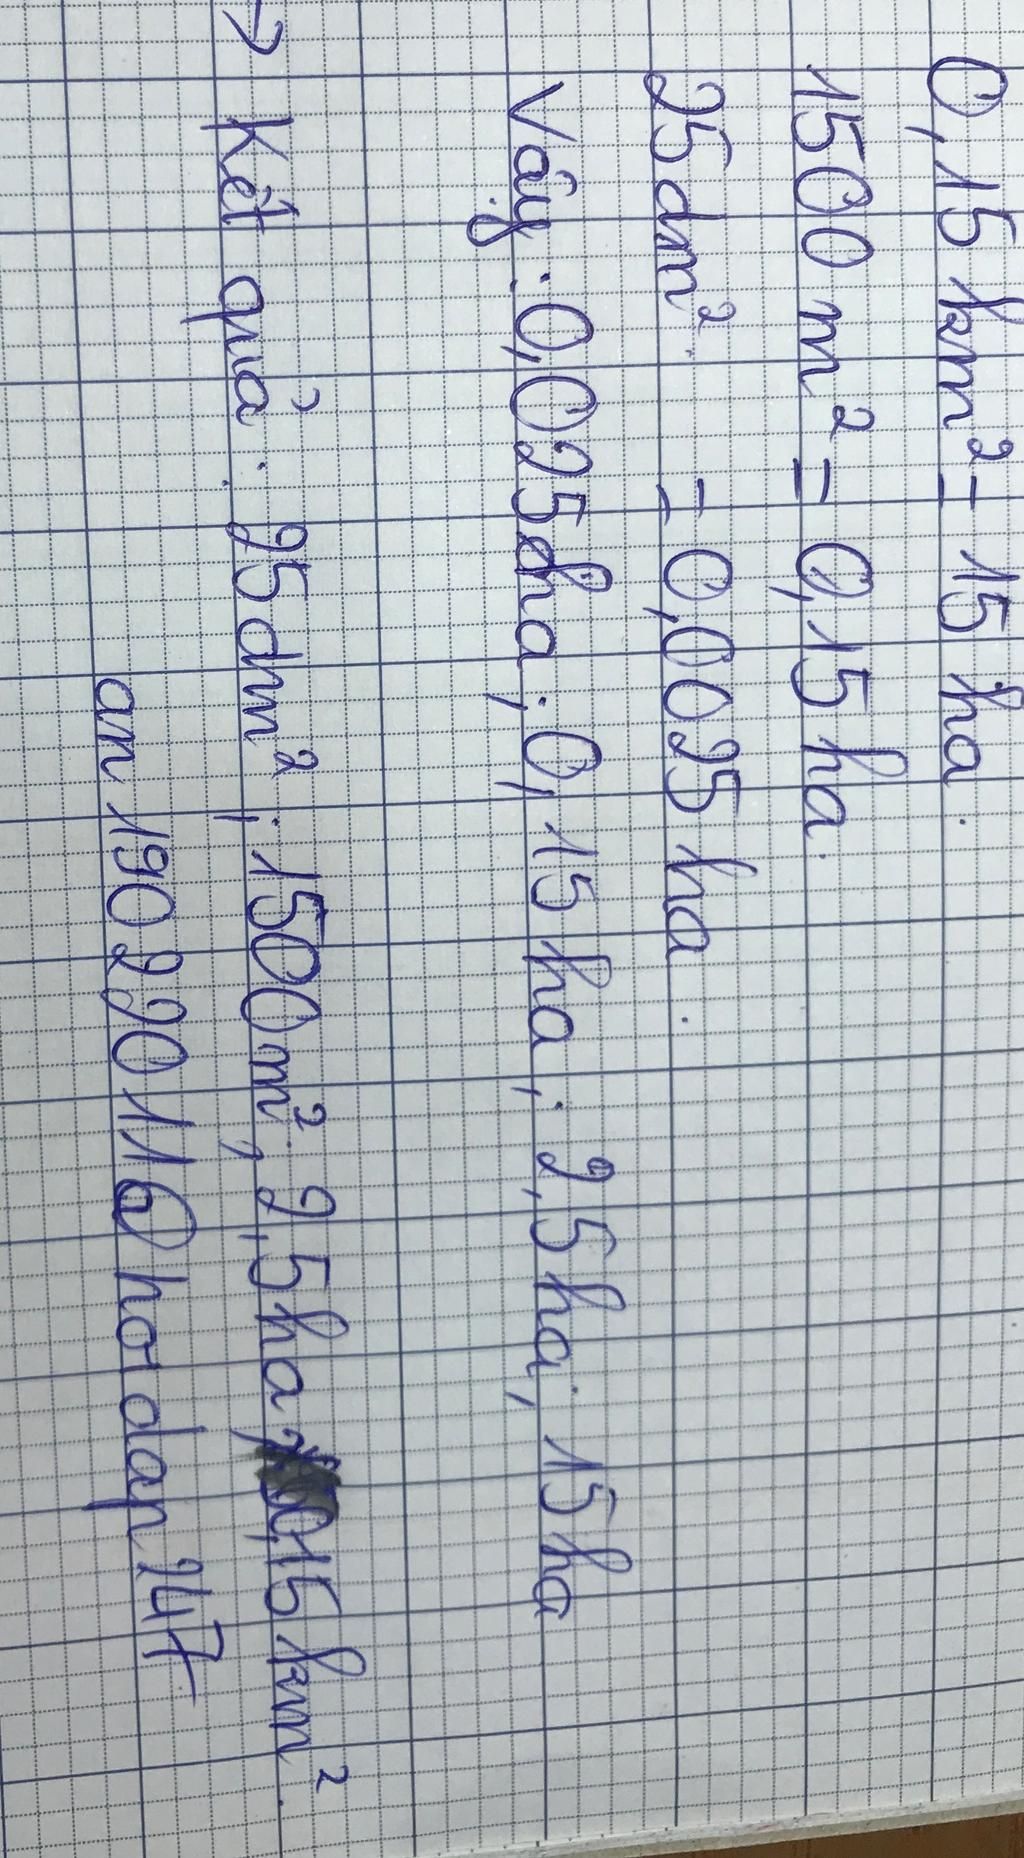 0,15 km² = 15 ha.
1500 m² = 0,15 ha.
25 dm² = 0,0025 ha.
Vậy : 0,0025 ha ; 0,15 ha ; 2,5 ha ; 15 ha
→ Kết quả : 25 dm² ; 1500 m² ; 2,5 ha ; 0,15 km².
an 190 220 116 hordap 247